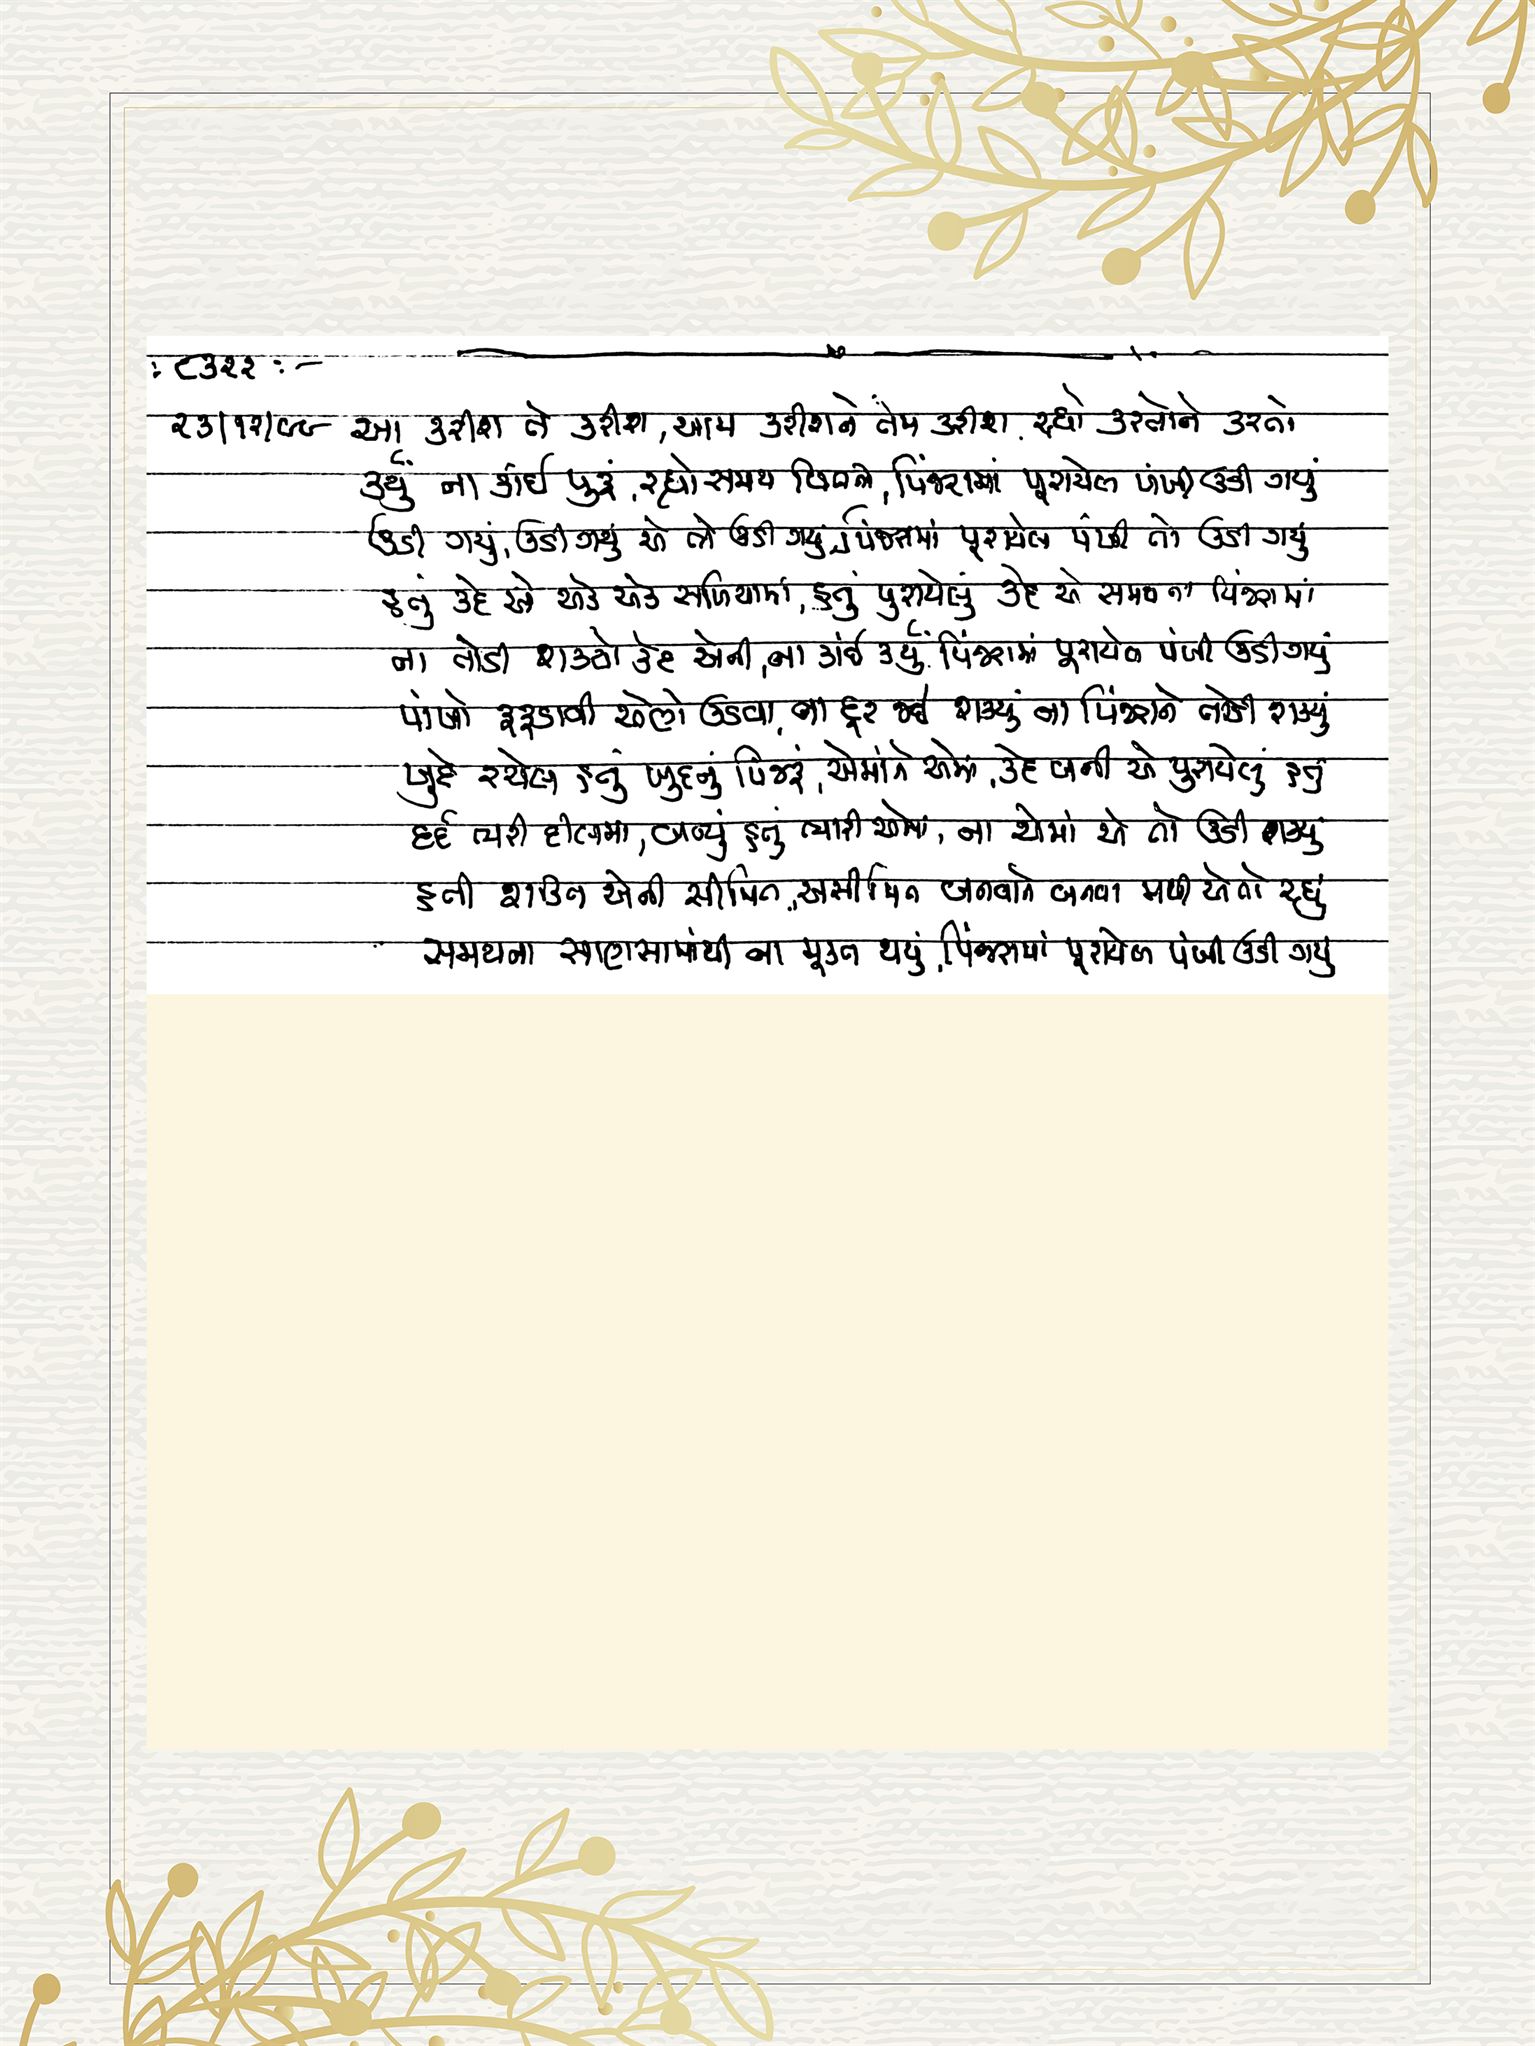 : ૮૩૨૨ : -
૨૩/૧૨/૯૯ આ કરીશ તે કરીશ, આમ કરીશને તેમ કરીશ. રહ્યો કરતોને કરતો
કર્યું ના કાંઈ પુરૂં, રહ્યો સમય વિતતો, પિંજરામાં પૂરાયેલ પંખી ઉડી ગયું
ઉડી ગયું, ઉડી ગયું એ તો ઉડી ગયું, પિંજરામાં પૂરાયેલ પંખી તો ઉડી ગયું
હતું કેદ એ એક એક સળિયામાં, હતું પુરાયેલું કેદ એ સમયના પિંજરામાં
ના તોડી શક્યો કેદ એની, ના કાંઈ કર્યું. પિંજરામાં પૂરાયેલ પંખી ઉડી ગયું
પાંખો ફફડાવી એણે ઉડવા, ના દૂર જઈ શક્યું ના પિંજરાને તોડી શક્યું
ખુદે રચેલ હતું ખુદનું પિંજરૂં, એમાંને એમાં, કેદ બની એ પુરાયેલું હતું
દર્દ ત્યારી દીલમાં, બન્યું હતું ત્યારી એમાં, ના એમાં એ તો ઉડી શક્યું
હતી શક્તિ એની સીમિત, અસીમિત બનવાને બનવા મથી એ તો રહ્યું
સમયના સાણસામાંથી ના મુક્ત થયું, પિંજરામાં પૂરાયેલ પંખી ઉડી ગયું